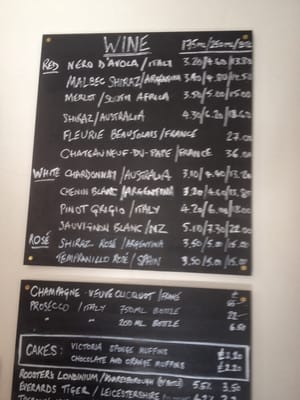 WINE 175ML/250ML/
RED NERO D'AVOLA/ITALY 3.20/4.60/13.80
MALBEC SHIRAZ/ARGENTINA
MERLOT/SOUTH AFRICA 3.50/5.00/15.00
SHIRAZ/AUSTRALIA 4.30/6.20/18.60
FLEURIE BEAUJOLAIS/FRANCE 27.00
CHATEAUNEUF-DU-PAPE/FRANCE 36.00
WHITE CHARDONNAY/AUSTRALIA
CHENIN BLANC/ARGENTINA 3.20/4.60/13.80
PINOT GRIGIO/ITALY 4.20/6.00/18.00
SAUVIGNON BLANC/NZ 5.10/7.30/22.00
ROSÉ SHIRAZ ROSÉ/ARGENTINA 3.50/5.00/15.00
TEMPRANILLO ROSÉ/SPAIN 3.50/5.00/15.00
CHAMPAGNE - VEUVE CLICQUOT/ £
PROSECCO/ITALY 750ML BOTTLE
" " 200ML BOTTLE 6.50
CAKES: VICTORIA SPONGE MUFFINS
CHOCOLATE AND ORANGE MUFFINS £2.20
ROOSTERS LONDINIUM/ 5.5% 3.50
EVERARDS TIGER/LEICESTERSHIRE